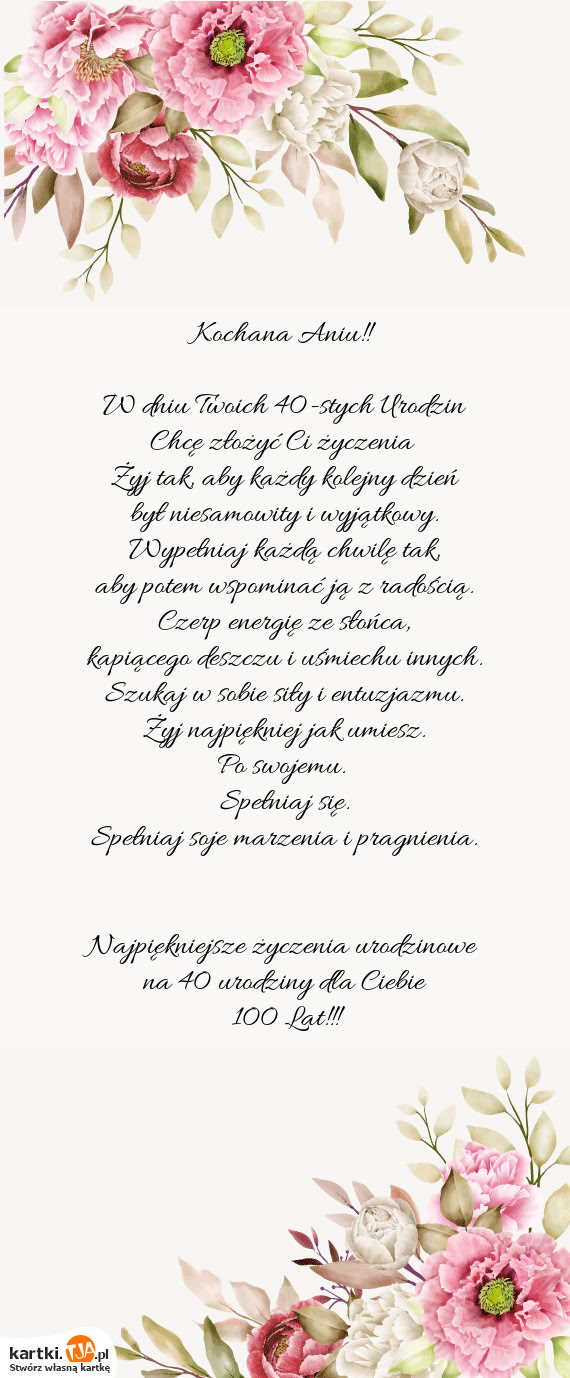 Kochana Aniu!!
W dniu Twoich 40-stych Urodzin
Chcę złożyć Ci życzenia
Żyj tak, aby każdy kolejny dzień
był niesamowity i wyjątkowy.
Wypełniaj każdą chwilę tak,
aby potem wspominać ją z radością.
Czerp energię ze słońca,
kapiącego deszczu i uśmiechu innych.
Szukaj w sobie siły i entuzjazmu.
Żyj najpiękniej jak umiesz.
Po swojemu.
Spełniaj się.
Spełniaj soje marzenia i pragnienia.
Najpiękniejsze życzenia urodzinowe
na 40 urodziny dla Ciebie
100 Lat!!!
kartki.TJA.pl
Stwórz własną kartkę